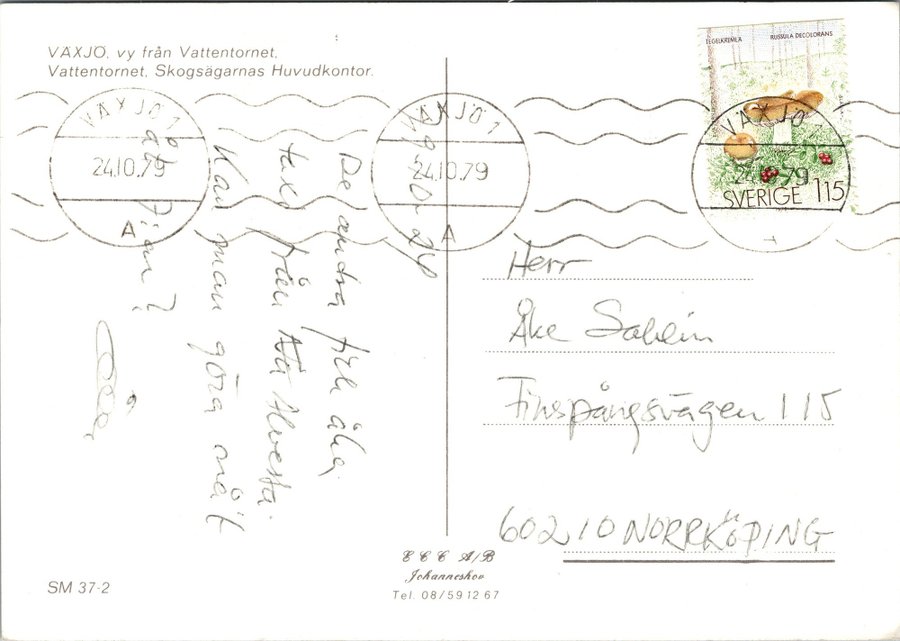 VÄXJÖ, vy från Vattentornet,
Vattentornet, Skogsägarnas Huvudkontor.
TEGELKREMLA RUSSULA DECOLORANS
SVERIGE 115
VÄXJÖ 1
24.10.79
A
VÄXJÖ 1
24.10.79
A
VÄXJÖ
24.10.79
De andra fick åka
taxi från Alvesta.
Kan man göra något
åt
Herr
Åke Sahlin
Finspångsvägen 115
602 10 NORRKÖPING
E C C A/B
Johanneshov
Tel. 08/59 12 67
SM 37-2